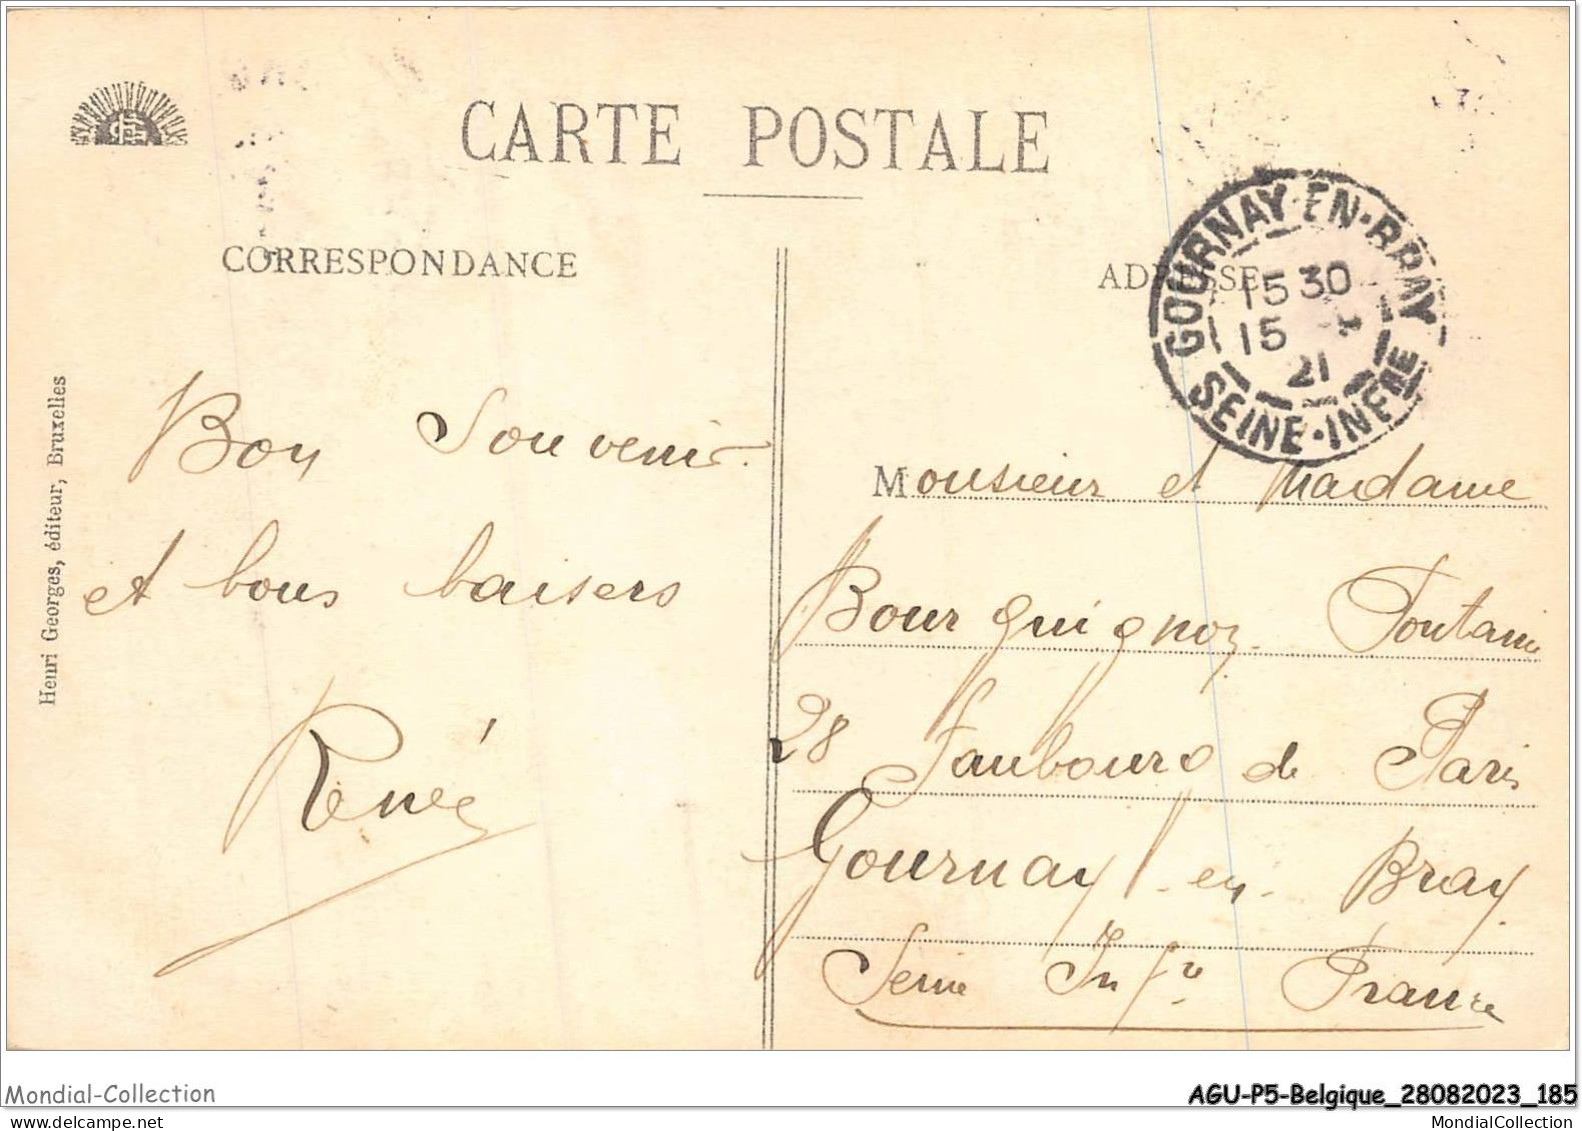 CARTE POSTALE
CORRESPONDANCE
ADRESSE
GOURNAY-EN-BRAY
15 30
15
21
SEINE-INFRE
Henri Georges, éditeur, Bruxelles
Bon Souvenir
et bons baisers
René
Monsieur et Madame
Bourguignon Fontaine
28 Faubourg de Paris
Gournay-en-Bray
Seine Infre France
Mondial-Collection
AGU-P5-Belgique_28082023_185
delcampe.net
MondialCollection